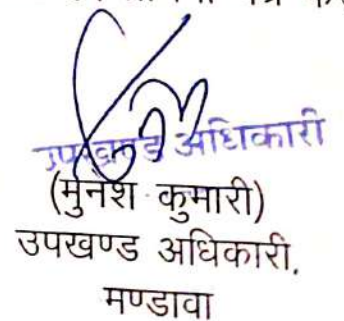 उपखण्ड अधिकारी
(मुनेश कुमारी)
उपखण्ड अधिकारी,
मण्डावा